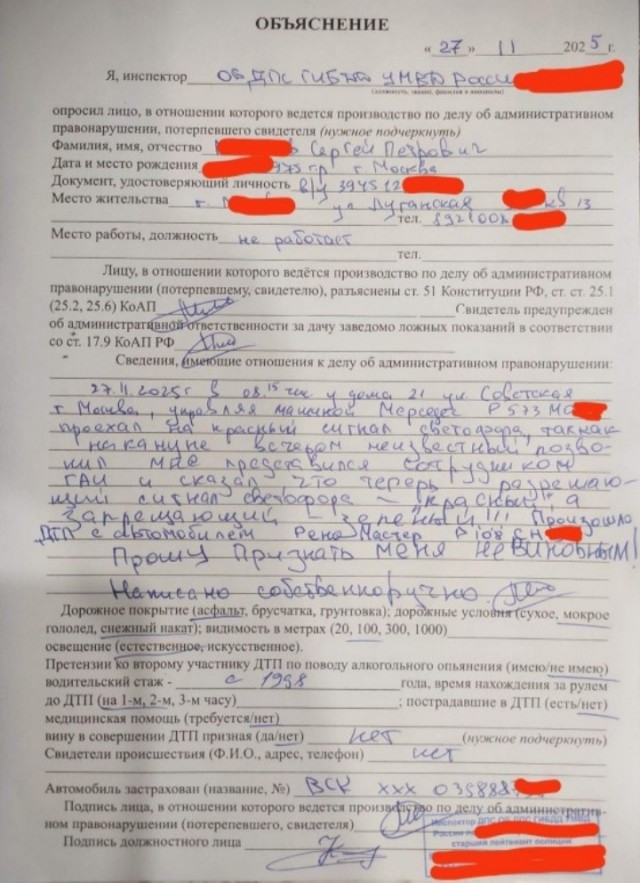 ОБЪЯСНЕНИЕ
«27» 11 2025 г.
Я, инспектор ОБ ДПС ГИБДД УМВД Росси
(должность, звание, фамилия и инициалы)
опросил лицо, в отношении которого ведется производство по делу об административном
правонарушении, потерпевшего свидетеля (нужное подчеркнуть)
Фамилия, имя, отчество Сергей Петрович
Дата и место рождения 975 гр г. Москва
Документ, удостоверяющий личность в/у 394512
Место жительства г. ул Луганская кв 13
тел.
Место работы, должность не работает
тел.
Лицу, в отношении которого ведётся производство по делу об административном
правонарушении (потерпевшему, свидетелю), разъяснены ст. 51 Конституции РФ, ст. ст. 25.1
(25.2, 25.6) КоАП Свидетель предупрежден
об административной ответственности за дачу заведомо ложных показаний в соответствии
со ст. 17.9 КоАП РФ
Сведения, имеющие отношения к делу об административном правонарушении:
27.11.2025г в 08.15 час у дома 21 ул Советская
г Москва, управляя машиной Мерседес Р573М
проехал на красный сигнал светофора, так как
накануне вечером неизвестный позво-
нил мне представился сотрудником
ГАИ и сказал что теперь разрешаю-
щий сигнал светофора - "красный", а
запрещающий - зеленый!!! Произошло
ДТП с автомобилем Рено Мастер
Прошу Признать меня невиновным!
Написано собственноручно.
Дорожное покрытие (асфальт, брусчатка, грунтовка); дорожные условия (сухое, мокрое
гололед, снежный накат); видимость в метрах (20, 100, 300, 1000)
освещение (естественное, искусственное).
Претензии ко второму участнику ДТП по поводу алкогольного опьянения (имею/не имею)
водительский стаж - с 1998 года, время нахождения за рулем
до ДТП (на 1-м, 2-м, 3-м часу) ; пострадавшие в ДТП (есть/нет)
медицинская помощь (требуется/нет)
вину в совершении ДТП призная (да/нет) нет (нужное подчеркнуть)
Свидетели происшествия (Ф.И.О., адрес, телефон) нет
Автомобиль застрахован (название, №) ВСК ХХХ 035888
Подпись лица, в отношении которого ведется производство по делу об административ-
ном правонарушении (потерепевшего, свидетеля)
Подпись должностного лица
Инспектор ДПС ОБ ДПС ГИБДД УМВД
России
старший лейтенант полиции